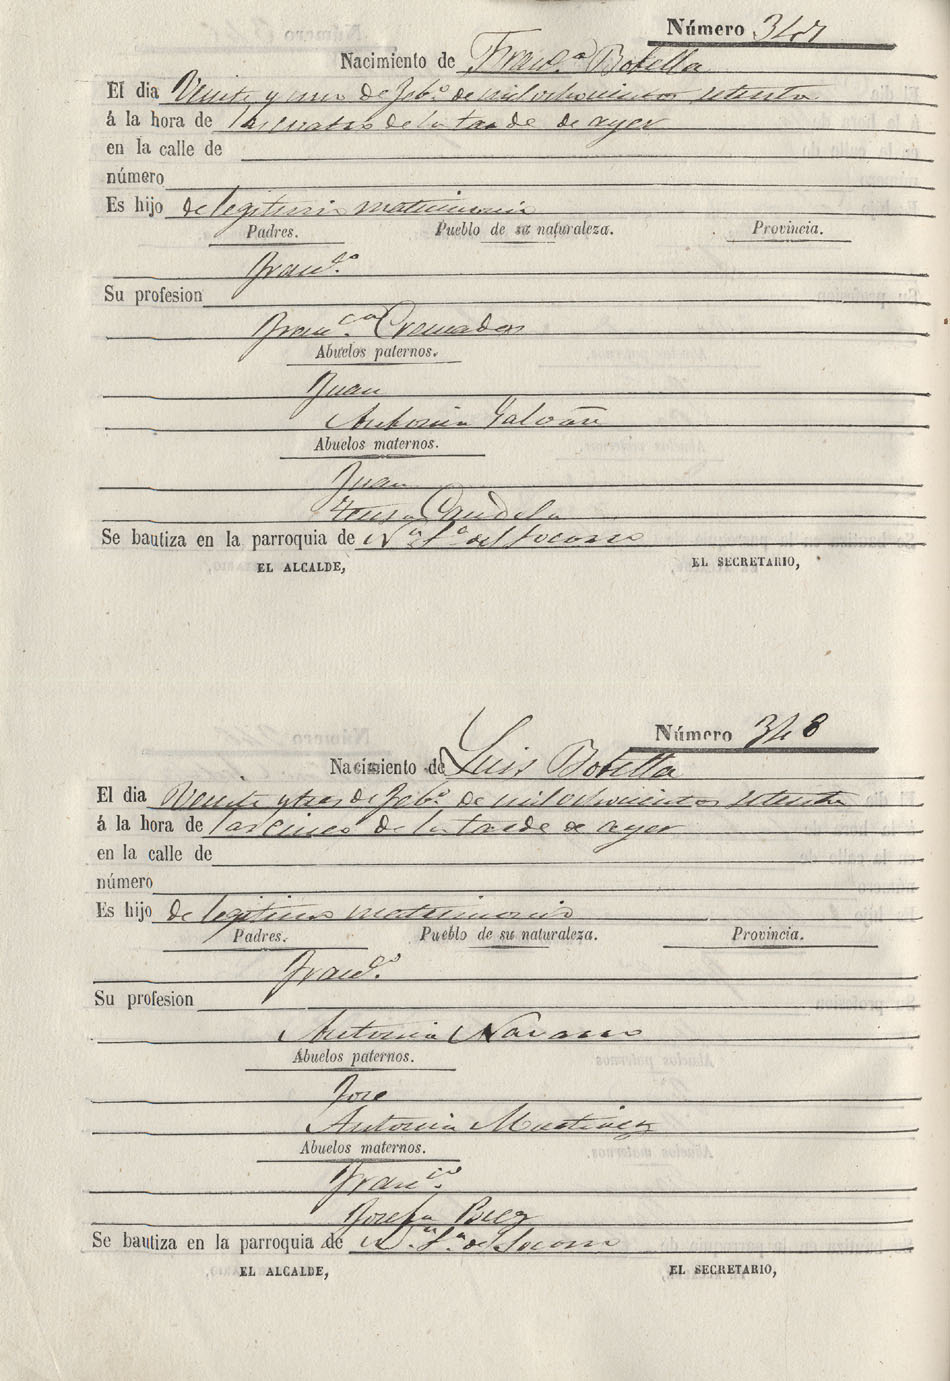 Número 347
Nacimiento de Franca Botella
El dia Veinte y uno de Febo de mil ochocientos setenta
á la hora de las cuatro de la tarde de ayer
en la calle de
número
Es hijo de legitimo matrimonio
Padres. Pueblo de su naturaleza. Provincia.
Franco
Su profesion
Franca Cremades
Abuelos paternos.
Juan
Antonia Galvañ
Abuelos maternos.
Juan
Teresa
Se bautiza en la parroquia de Na Sa del Socorro
EL ALCALDE, EL SECRETARIO,
Número 348
Nacimiento de Luis Botella
El dia Veinte y tres de Febo de mil ochocientos setenta
á la hora de las cinco de la tarde de ayer
en la calle de
número
Es hijo de legitimo matrimonio
Padres. Pueblo de su naturaleza. Provincia.
Franco
Su profesion
Antonia Navarro
Abuelos paternos.
Jose
Antonia Martinez
Abuelos maternos.
Franco
Josefa
Se bautiza en la parroquia de Na Sa del Socorro
EL ALCALDE, EL SECRETARIO,